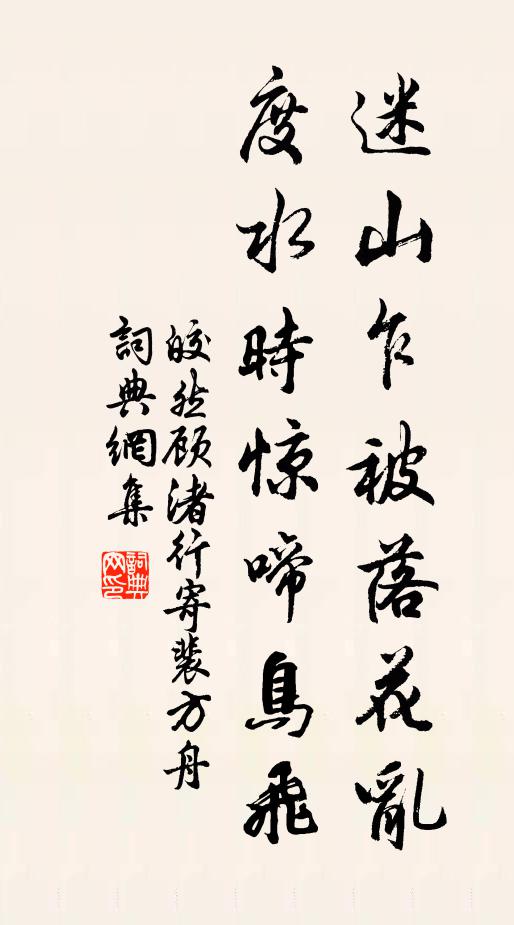 迷山乍被落花亂
度水時惊啼鳥飛
皎然顾渚行寄裴方舟
詞典網集
詞典网印